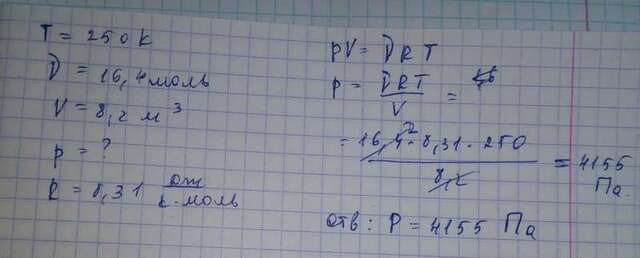 T = 250 К
ν = 16,4 моль
V = 8,2 м³
p = ?
R = 8,31 Дж/К·моль
pV = νRT
p = νRT/V =
= 16,4² · 8,31 · 250 / 8,2 = 4155 Па.
отв: P = 4155 Па